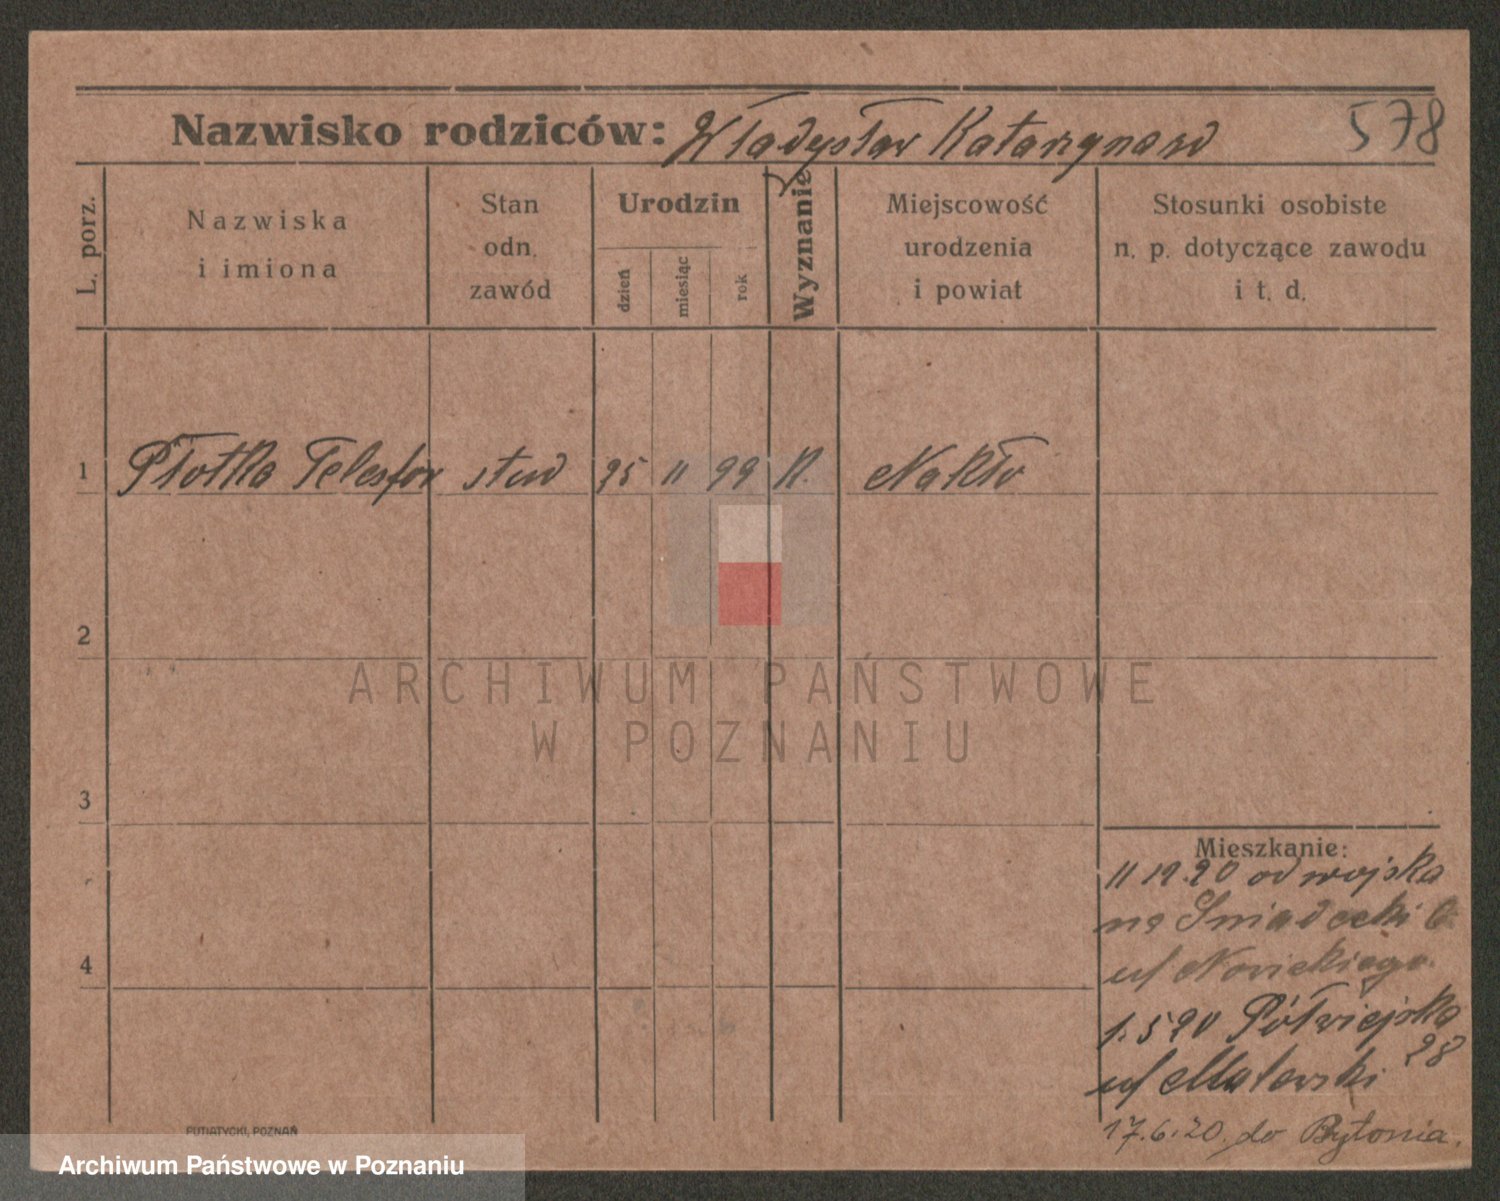 Nazwisko rodziców: Władysław Katarzyna 578
L. porz.
Nazwiska
i imiona
Stan
odn.
zawód
Urodzin
dzień
miesiąc
rok
Wyznanie
Miejscowość
urodzenia
i powiat
Stosunki osobiste
n. p. dotyczące zawodu
i t. d.
1 Płotka Telesfor stud 25 11 99 K. Nakło
2
ARCHIWUM PAŃSTWOWE
W POZNANIU
3
Mieszkanie:
od wojska
na Śniadecki
4
uf Novickiego
1.5 20 Półwiejska
28
uf
17.6.20. do Bytonia.
PUTIATYCKI, POZNAŃ
Archiwum Państwowe w Poznaniu